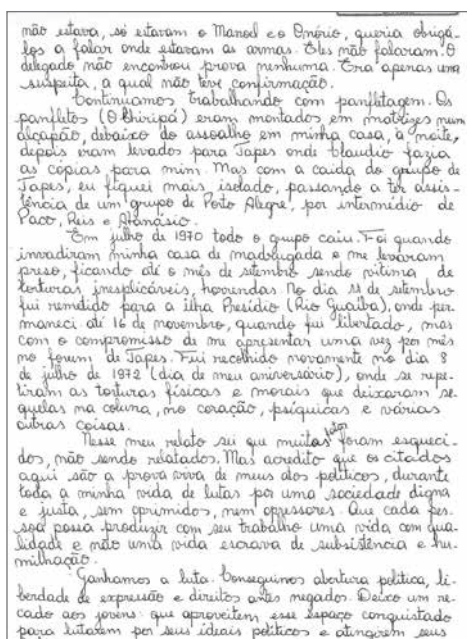 não estava, só estavam o Manoel e o Onório, queria obrigá-
los a falar onde estavam as armas. Eles não falaram. O
delegado não encontrou prova nenhuma. Era apenas uma
suspeita, a qual não teve confirmação.
Continuamos trabalhando com panfletagem. Os
panfletos (O Chiripá) eram montados em matrizes num
alçapão, debaixo do assoalho em minha casa, à noite,
depois eram levados para Tapes onde Claudio fazia
as cópias para mim. Mas com a caída do grupo de
Tapes, eu fiquei mais isolado, passando a ter assis-
tência de um grupo de Porto Alegre, por intermédio de
Paco, Reis e Atanásio.
Em julho de 1970 todo o grupo caiu. Foi quando
invadiram minha casa de madrugada e me levaram
preso, ficando até o mês de setembro sendo vítima de
torturas inexplicáveis, horrendas. No dia de setembro
fui remetido para a ilha Presídio (Rio Guaíba), onde per-
maneci até 16 de novembro, quando fui libertado, mas
com o compromisso de me apresentar uma vez por mês
no forum de Tapes. Fui recolhido novamente no dia 8
de julho de 1972 (dia de meu aniversário), onde se repe-
tiram as torturas físicas e morais que deixaram se-
quelas na coluna, no coração, psíquicas e várias
outras coisas.
Nesse meu relato sei que muitos fatos foram esqueci-
dos, não sendo relatados. Mas acredito que os citados
aqui são a prova viva de meus atos políticos, durante
toda a minha vida de lutas por uma sociedade digna
e justa, sem oprimidos, nem opressores. Que cada pes-
soa possa produzir com seu trabalho uma vida com qua-
lidade e não uma vida escrava de subsistência e hu-
milhação.
Ganhamos a luta. Conseguimos abertura política, li-
berdade de expressão e direitos antes negados. Deixo um re-
cado aos jovens: que aproveitem esse espaço conquistado
para lutarem por seus ideais políticos e atingirem seus